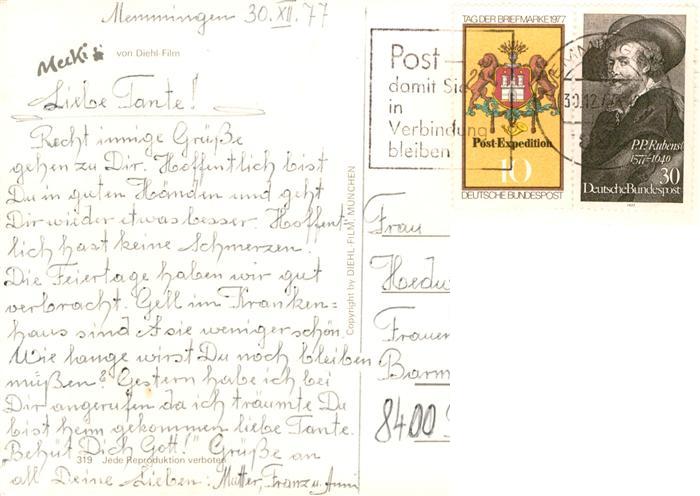 Memmingen 30.XII.77
Mecki
von Diehl-Film
Liebe Tante!
Recht innige Grüße
gehen zu Dir. Hoffentlich bist
Du in guten Händen und geht
Dir wieder etwas besser. Hoffent-
lich hast keine Schmerzen.
Die Feiertage haben wir gut
verbracht. Gell im Kranken=
haus sind sie weniger schön.
Wie lange wirst Du noch bleiben
müßen? Gestern habe ich bei
Dir angerufen da ich träumte Du
bist heim gekommen liebe Tante.
"Behüt Dich Gott!" Grüße an
319 Jede Reproduktion verboten
all Deine Lieben: Mutter, Franz u. Anni
Copyright by DIEHL-FILM, MÜNCHEN
Post-
damit Sie
in
Verbindung
bleiben
TAG DER BRIEFMARKE 1977
Post-Expedition
10
DEUTSCHE BUNDESPOST
30.12.77
P.P. Rubens
1577-1640
30
Deutsche Bundespost
1977
Frau
Hedw
Frauen
Barm
8400